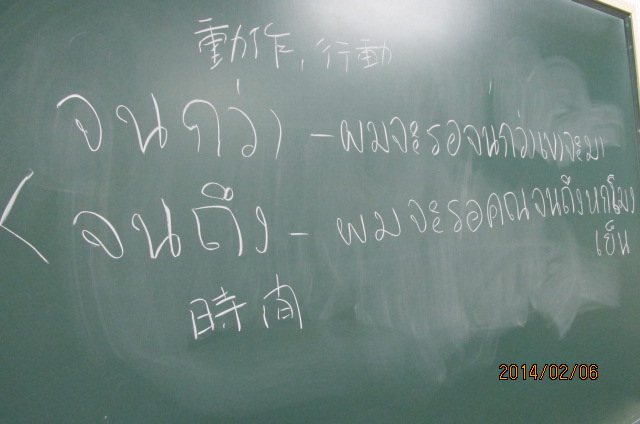 動作, 行動
จนกว่า - ผมจะรอจนกว่าเขาจะมา
จนถึง - ผมจะรอคุณจนถึงหกโมง
เย็น
時間
2014/02/06